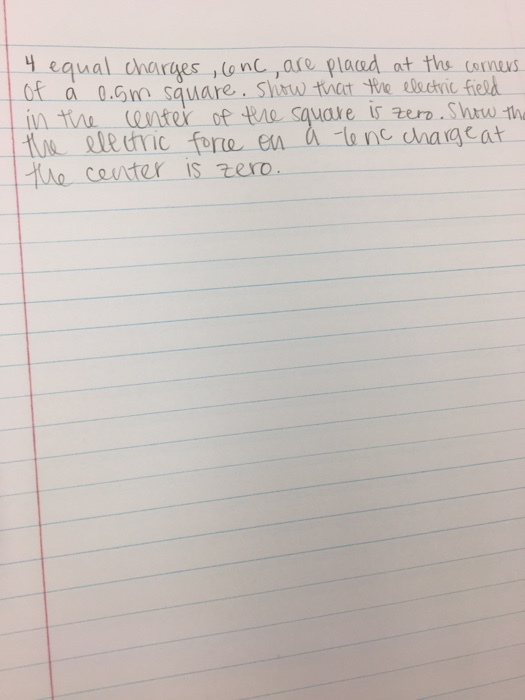 4 equal charges, 6nC, are placed at the corners
of a 0.5m square. Show that the electric field
in the center of the square is zero. Show tha
the electric force on a -6nC charge at
the center is zero.